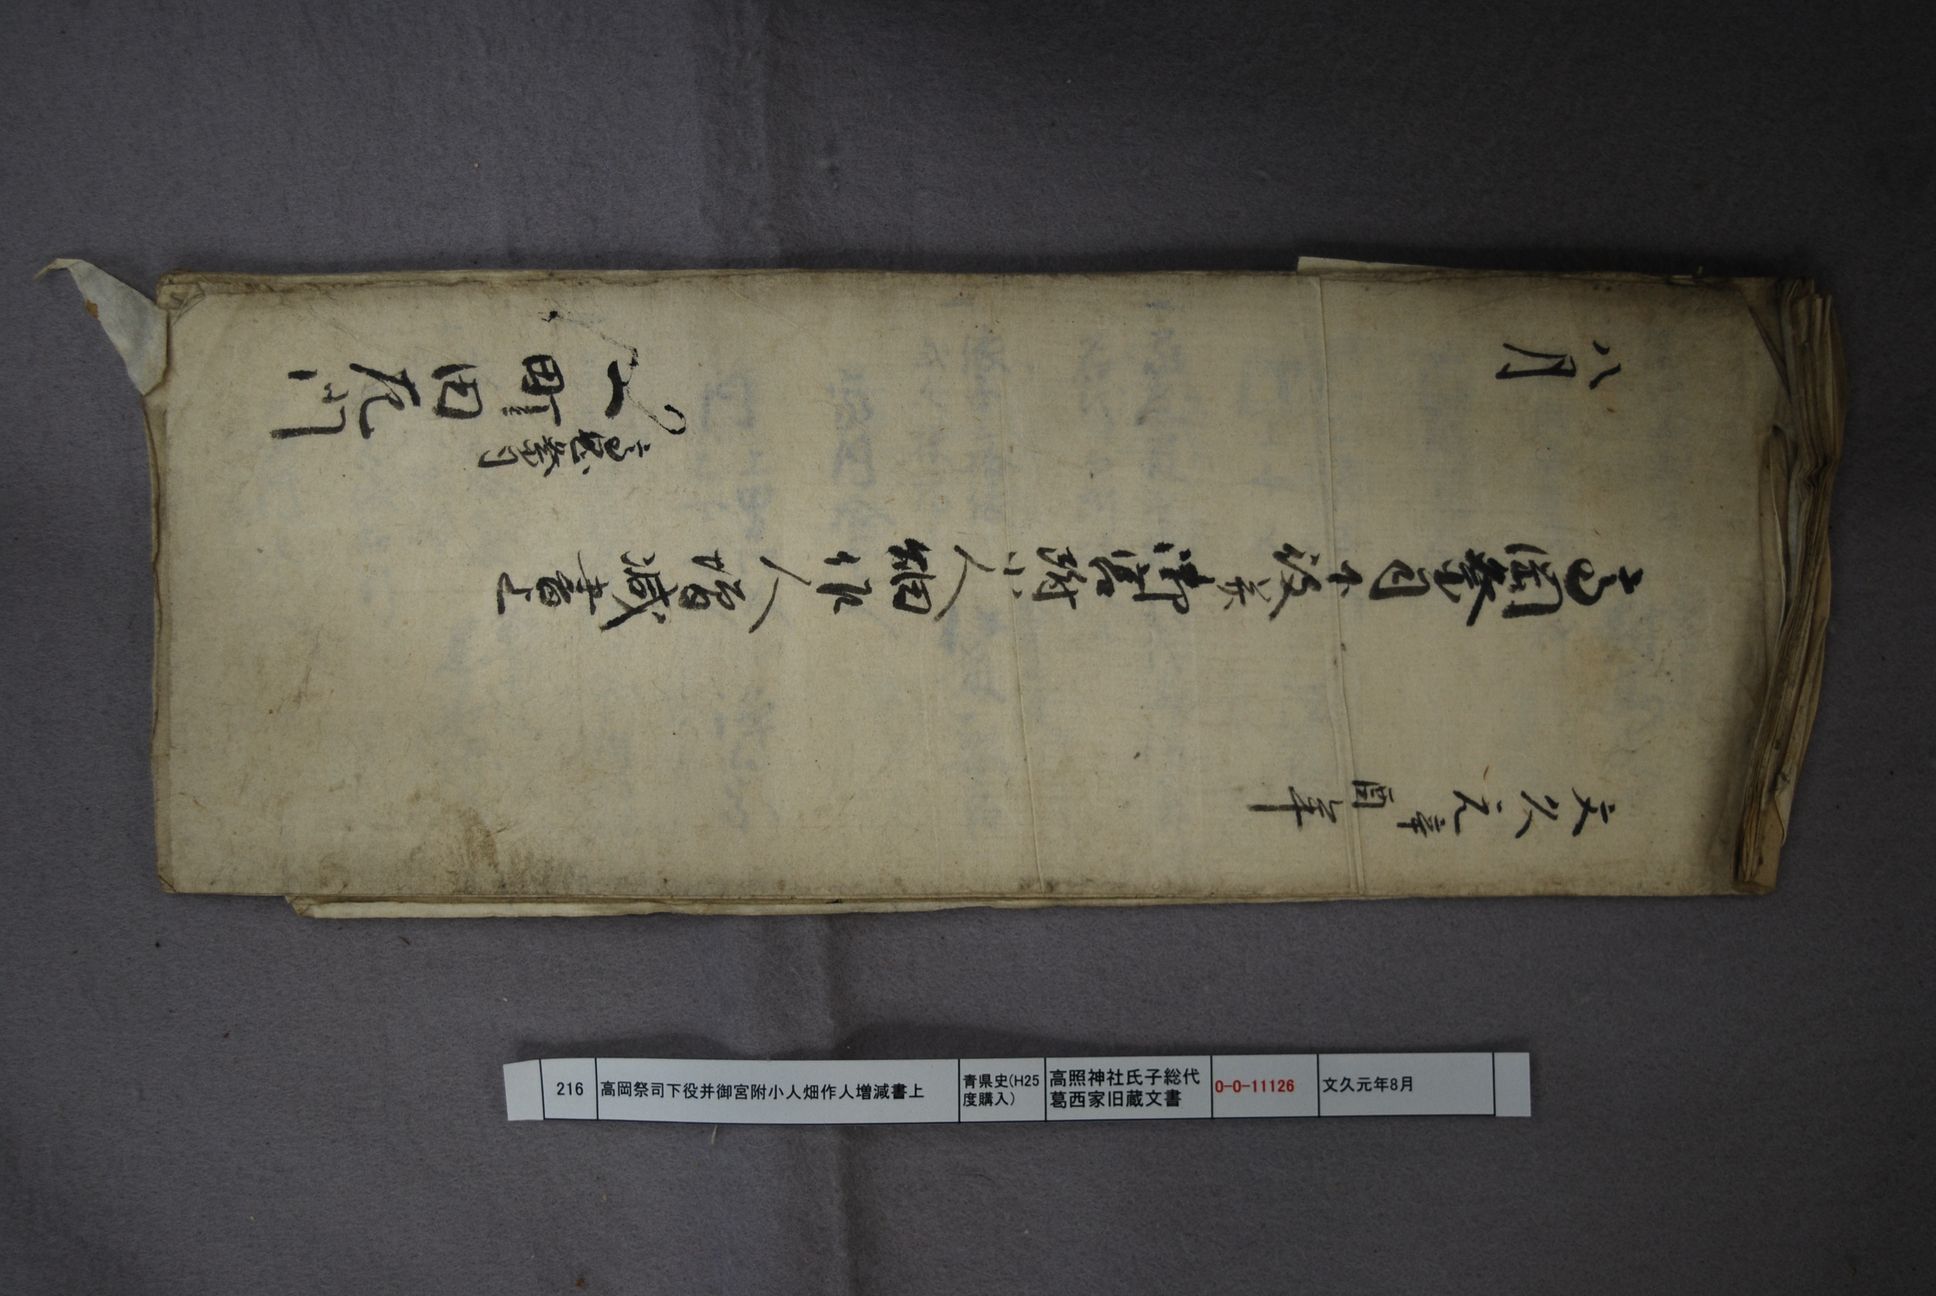 文久元辛酉年
高岡祭司下役并御宮附小人畑作人増減書上
八月
高岡祭司
町田左門
216
高岡祭司下役并御宮附小人畑作人増減書上
青県史(H25
度購入)
高照神社氏子総代
葛西家旧蔵文書
0-0-11126
文久元年8月